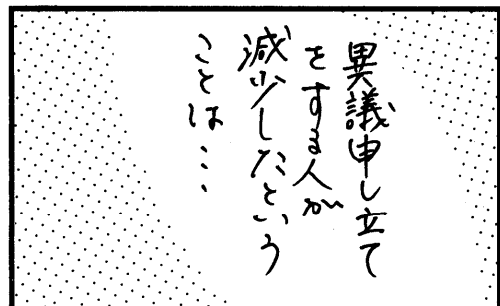 異議申し立て
をする人が
減少したという
ことは・・・